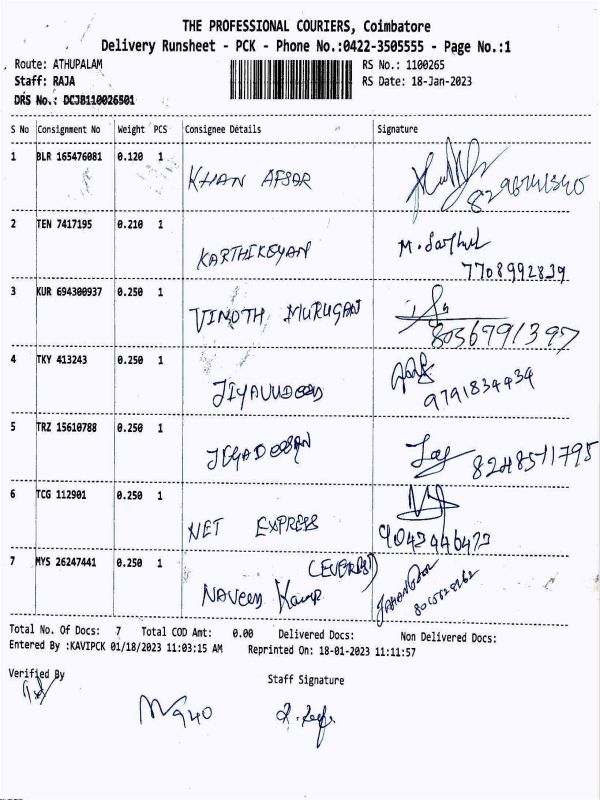 THE PROFESSIONAL COURIERS, Coimbatore
Delivery Runsheet - PCK - Phone No.:0422-3505555 - Page No.:1
Route: ATHUPALAM RS No.: 1100265
Staff: RAJA RS Date: 18-Jan-2023
DRS No.: DCJ8110026501
S No Consignment No Weight PCS Consignee Details Signature
1 BLR 165476081 0.120 1 KHAN AFSAR
2 TEN 7417195 0.210 1 KARTHIKEYAN M.
7708992839
3 KUR 694300937 0.250 1 VINOTH MURUGAN
8056791397
4 TKY 413243 0.250 1 JIYAVUDEEN
9791834434
5 TRZ 15610788 0.250 1
8248511795
6 TCG 112901 0.250 1 NET EXPRESS
9042446472
7 MYS 26247441 0.250 1 (EVEREST)
NAVEEN Kumar
Total No. Of Docs: 7 Total COD Amt: 0.00 Delivered Docs: Non Delivered Docs:
Entered By :KAVIPCK 01/18/2023 11:03:15 AM Reprinted On: 18-01-2023 11:11:57
Verified By Staff Signature